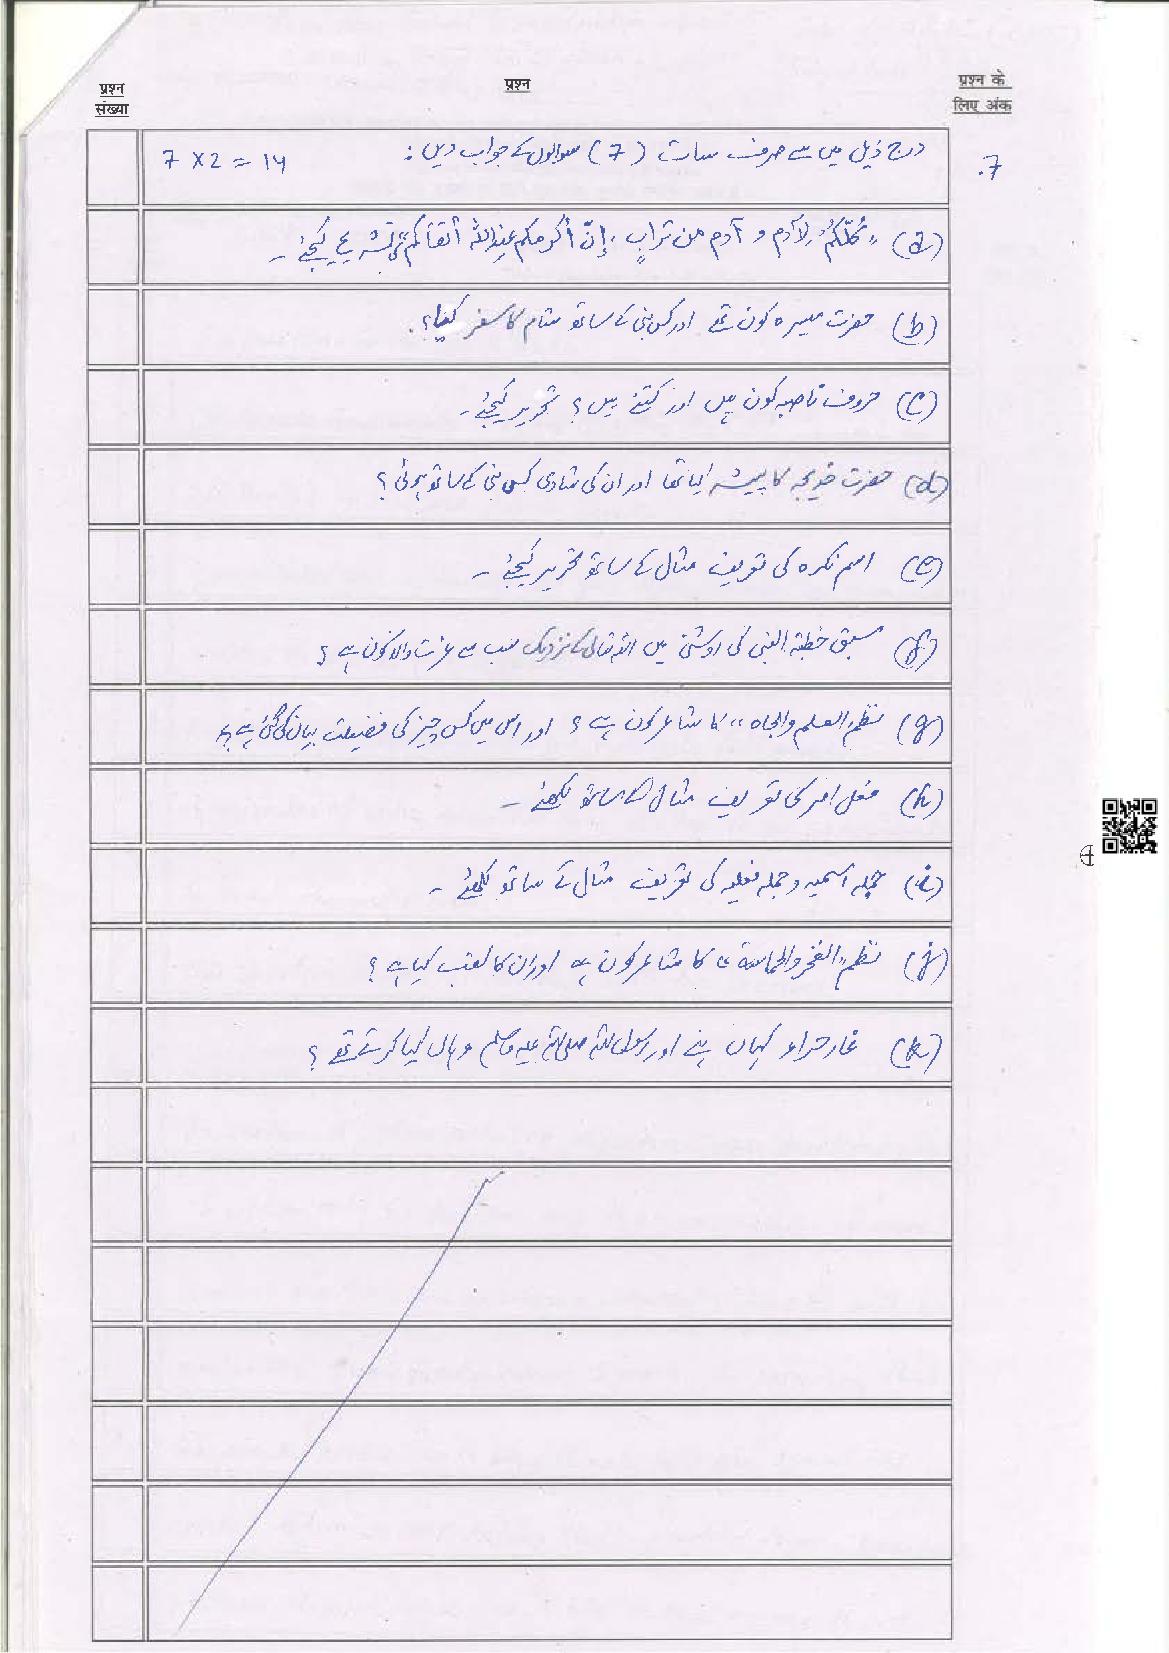 प्रश्न संख्या
प्रश्न
प्रश्न के लिए अंक
7. درج ذیل میں سے صرف سات (7) سوالوں کے جواب دیں: 7 x 2 = 14
(a) "کُلّکُم لِآدم و آدم من ترابٍ، إنّ أكرمكم عند الله أتقاكم" کی تشریح کیجئے۔
(b) حضرت میسرہ کون تھے اور کس نبی کے ساتھ شام کا سفر کیا؟
(c) حروف ناصبہ کون ہیں اور کتنے ہیں؟ تحریر کیجئے۔
(d) حضرت خدیجہ کا پیشہ کیا تھا اور ان کی شادی کس نبی کے ساتھ ہوئی؟
(e) اسم نکرہ کی تعریف مثال کے ساتھ تحریر کیجئے۔
(f) سبق خطبة النبی کی روشنی میں اللہ تعالیٰ کے نزدیک سب سے عزت والا کون ہے؟
(g) نظم "العلم والجاہ" کا شاعر کون ہے؟ اور اس میں کس چیز کی فضیلت بیان کی گئی ہے؟
(h) فعل امر کی تعریف مثال کے ساتھ لکھئے۔
(i) جملہ اسمیہ و جملہ فعلیہ کی تعریف مثال کے ساتھ لکھئے۔
(j) نظم "الفخر والحماسة" کا شاعر کون ہے اور ان کا لقب کیا ہے؟
(k) غار حراء کہاں ہے اور رسول اللہ صلی اللہ علیہ وسلم وہاں کیا کرتے تھے؟